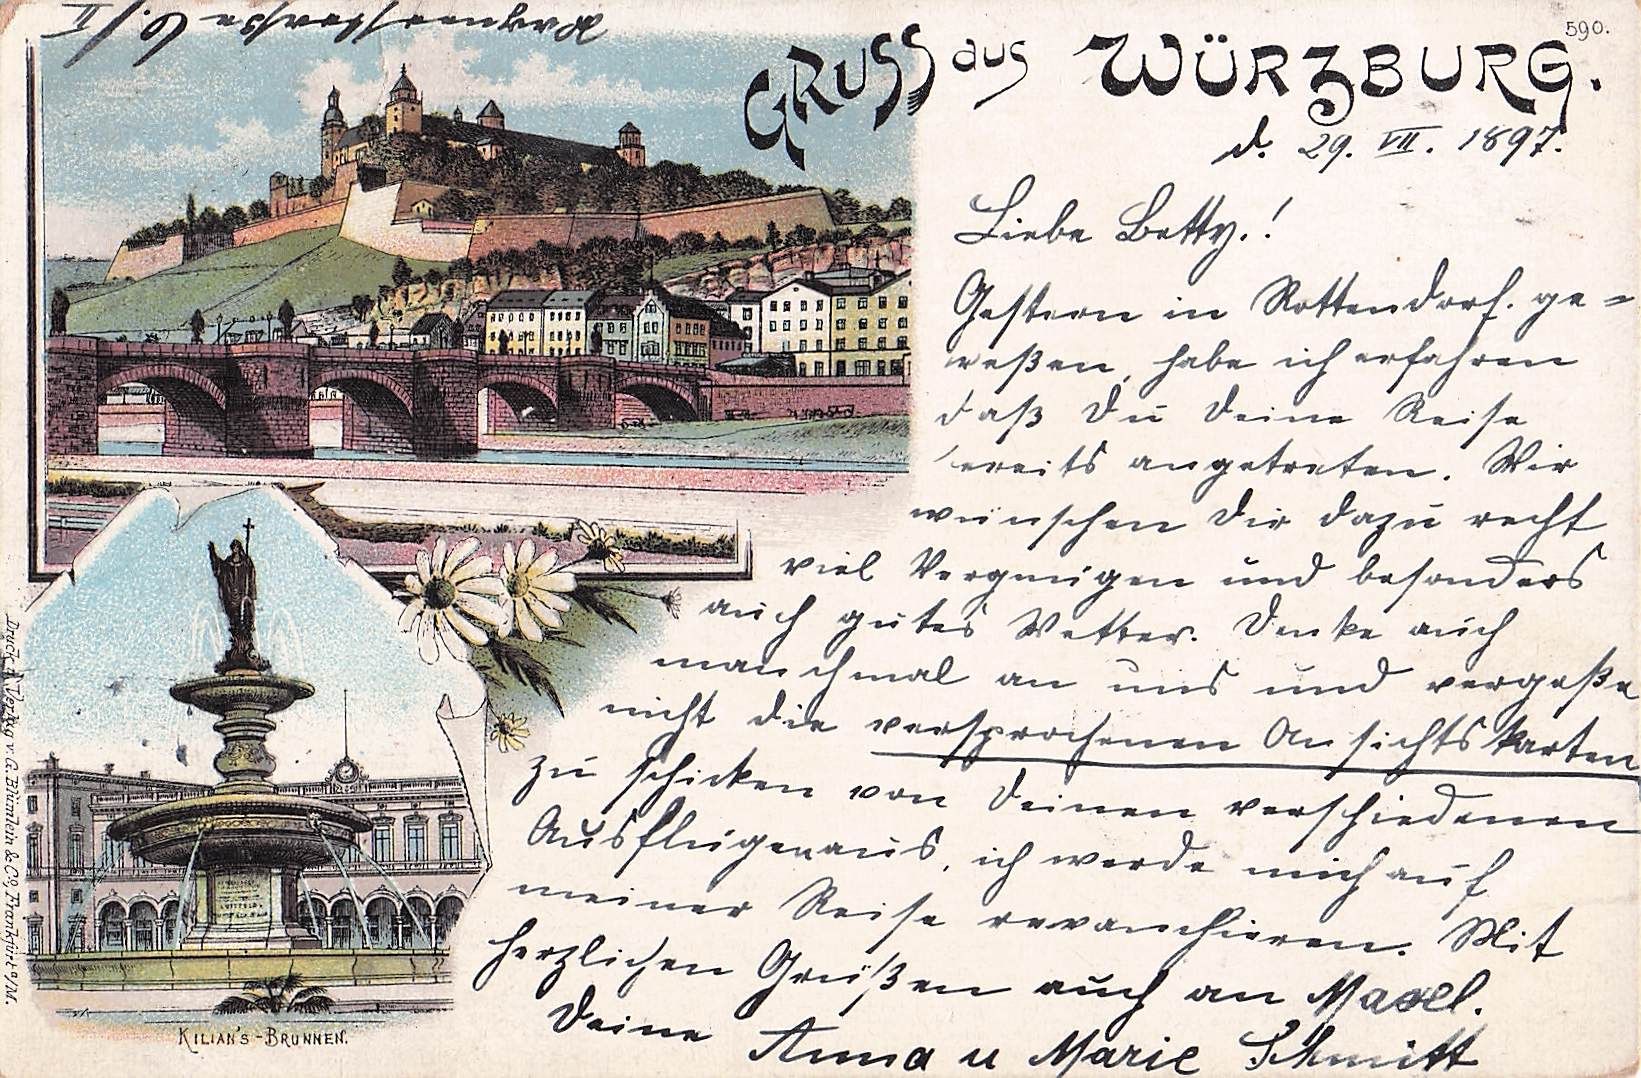 590.
GRUSS aus WÜRZBURG.
d. 29. VII. 1897.
Liebe Betty!
Gestern in Rottendorf. ge=
weßen, habe ich erfahren
daß Du Deine Reise
bereits angetreten. Wir
wünschen Dir dazu recht
viel Vergnügen und besonders
auch gutes Wetter. Denke auch
manchmal an uns und vergeße
nicht die versprochenen Ansichtskarten
zu schicken von Deinen verschiedenen
Ausflügen aus, ich werde mich auf
meiner Reise revanchieren. Mit
herzlichen Grüßen auch an Maxl.
Deine Anna u Marie Schmitt
Wagnerstraße 6/II
KILIAN'S-BRUNNEN.
Druck u. Verlag v. G. Blümlein & Co, Frankfurt a/M.